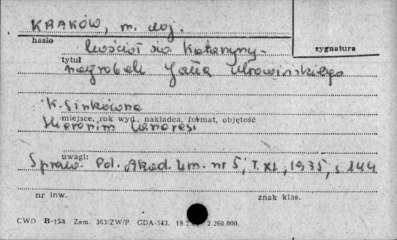 KRAKÓW, m. woj.
hasło
kościół św Katarzyny-
sygnatura
tytuł
nagrobek Jana
K. Sinkówna
miejsce, rok wyd., nakładca, format, objętość
uwagi:
Spraw. Pol. Akad. Um. nr 5, T. XL, 1935, s 144
nr inw.
znak klas.
CWD B-153 Zam. 363/ZW/P. GDA-543. 2.260.000.